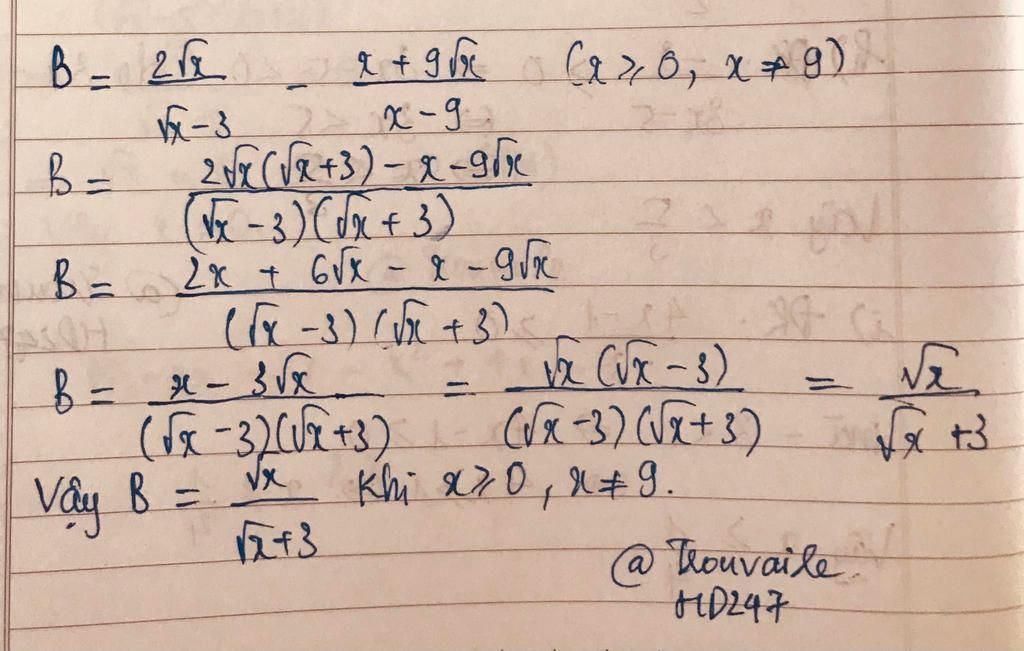 B = 2√x / (√x - 3) - (x + 9√x) / (x - 9) (x ≥ 0, x ≠ 9)
B = (2√x(√x + 3) - x - 9√x) / ((√x - 3)(√x + 3))
B = (2x + 6√x - x - 9√x) / ((√x - 3)(√x + 3))
B = (x - 3√x) / ((√x - 3)(√x + 3)) = (√x(√x - 3)) / ((√x - 3)(√x + 3)) = √x / (√x + 3)
Vậy B = √x / (√x + 3) khi x ≥ 0, x ≠ 9.
@ Trouvaille
HD247